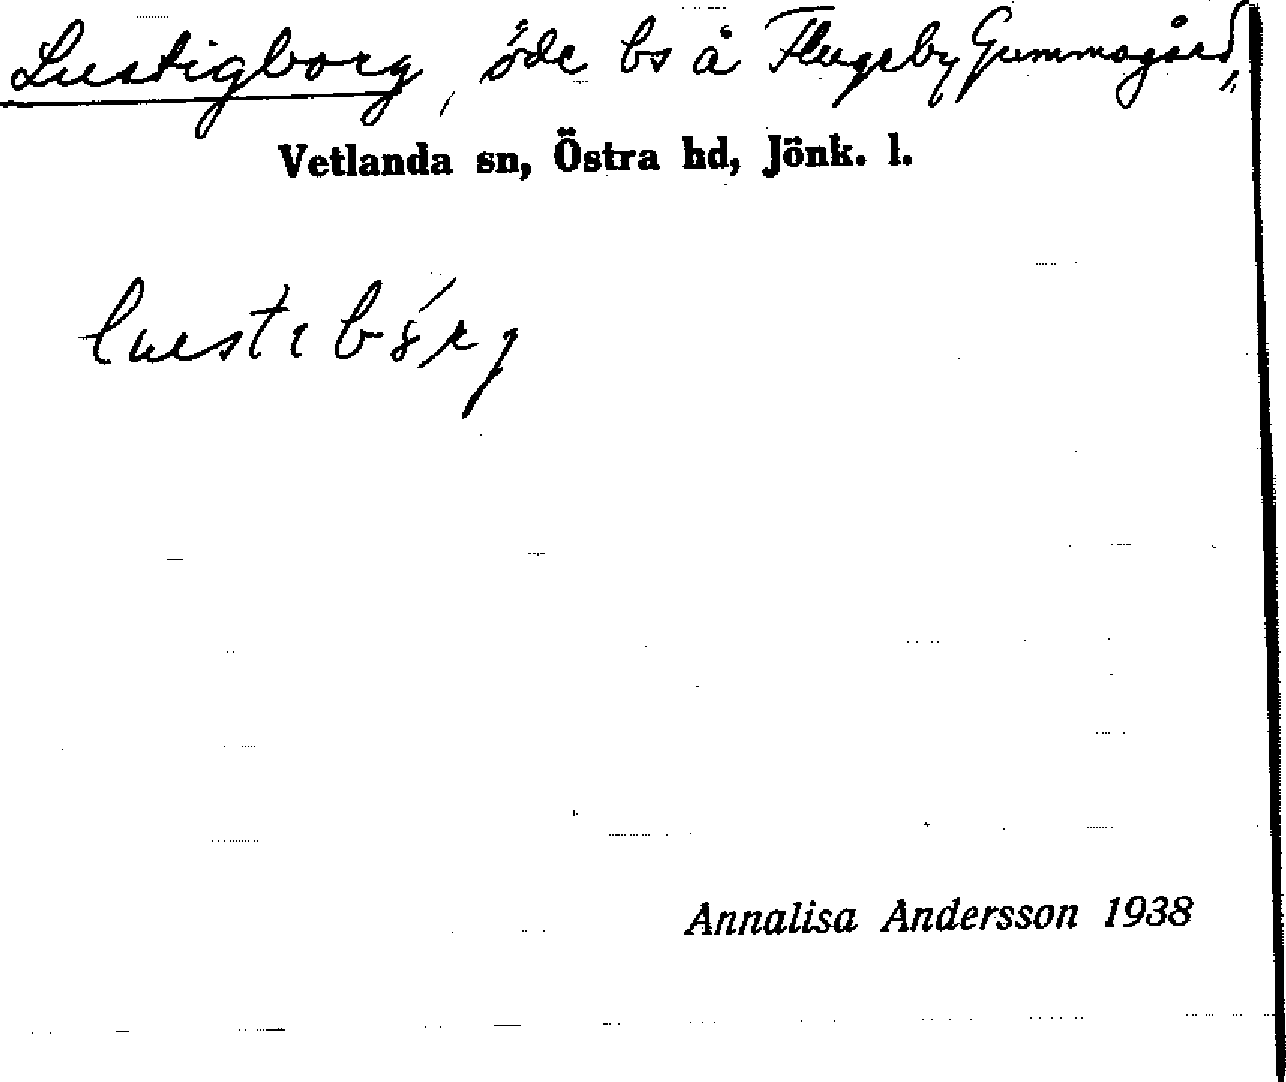 Lustigborg, öde bs å Flugeby Gummagård,
Vetlanda sn, Östra hd, Jönk. l.
Annalisa Andersson 1938